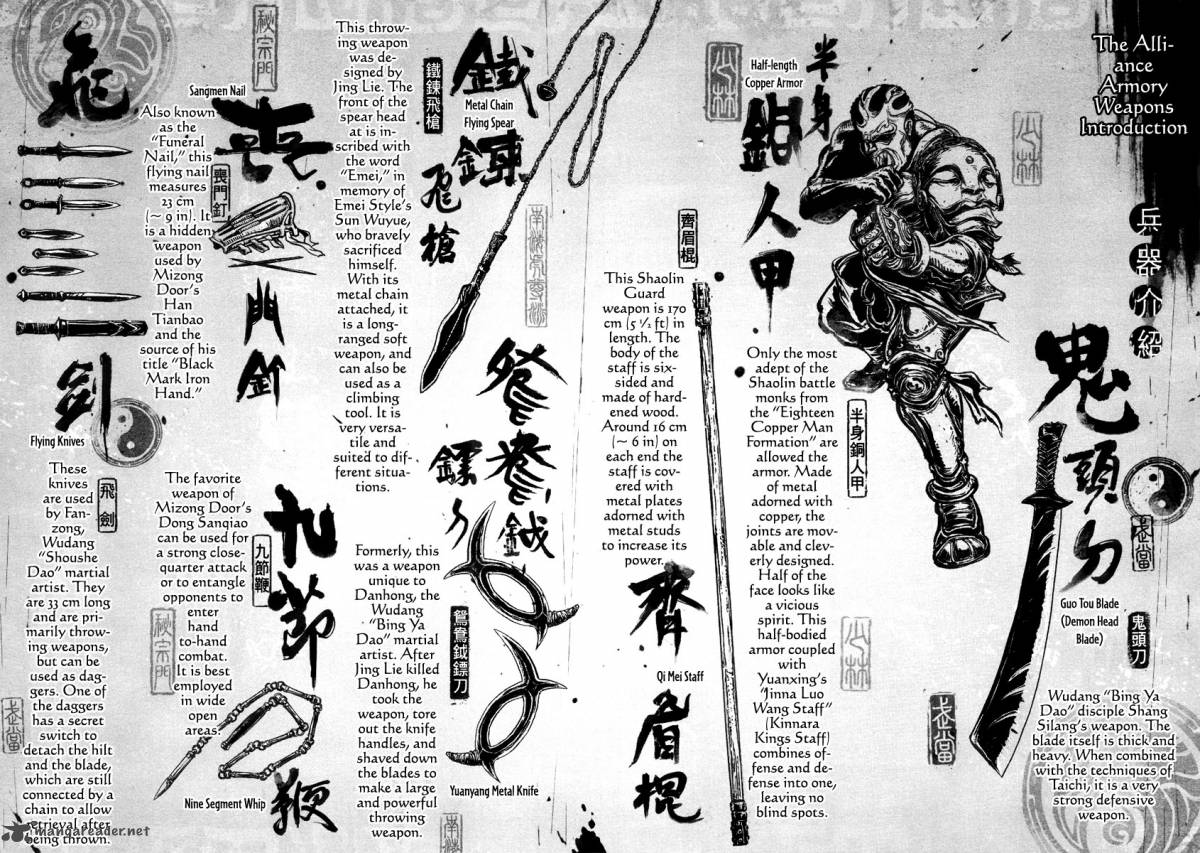 The Alli-
ance
Armory
Weapons
Introduction
兵器介紹
鬼頭刀
武當
Guo Tou Blade
(Demon Head
Blade)
鬼頭刀
Wudang “Bing Ya
Dao” disciple Shang
Silang’s weapon. The
blade itself is thick and
heavy. When combined
with the techniques of
Taichi, it is a very
strong defensive
weapon.
武當
少林
半身
銅人甲
Half-length
Copper Armor
少林
半身銅人甲
Only the most
adept of the
Shaolin battle
monks from
the “Eighteen
Copper Man
Formation” are
allowed the
armor. Made
of metal
adorned with
copper, the
joints are mov-
able and clev-
erly designed.
Half of the
face looks like
a vicious
spirit. This
half-bodied
armor coupled
with
Yuanxing’s
“Jinna Luo
Wang Staff”
(Kinnara
Kings Staff)
combines of-
fense and de-
fense into one,
leaving no
blind spots.
少林
齊眉棍
This Shaolin
Guard
weapon is 170
cm (5 ½ ft) in
length. The
body of the
staff is six-
sided and
made of hard-
ened wood.
Around 16 cm
(~ 6 in) on
each end the
staff is cov-
ered with
metal plates
adorned with
metal studs
to increase its
power.
齊眉棍
Qi Mei Staff
鐵鍊飛槍
Metal Chain
Flying Spear
鐵鍊飛槍
This throw-
ing weapon
was de-
signed by
Jing Lie. The
front of the
spear head
at is in-
scribed with
the word
“Emei,” in
memory of
Emei Style’s
Sun Wuyue,
who bravely
sacrificed
himself.
With its
metal chain
attached, it
is a long-
ranged soft
weapon, and
can also be
used as a
climbing
tool. It is
very versa-
tile and
suited to dif-
ferent situa-
tions.
鴛鴦鉞
鏢刀
鴛鴦鉞鏢刀
Formerly, this
was a weapon
unique to
Danhong, the
Wudang
“Bing Ya
Dao” martial
artist. After
Jing Lie killed
Danhong, he
took the
weapon, tore
out the knife
handles, and
shaved down
the blades to
make a large
and powerful
throwing
weapon.
Yuanyang Metal Knife
秘宗門
Sangmen Nail
喪門釘
喪門釘
Also known
as the
“Funeral
Nail,” this
flying nail
measures
23 cm
(~ 9 in). It
is a hidden
weapon
used by
Mizong
Door’s
Han
Tianbao
and the
source of his
title “Black
Mark Iron
Hand.”
九節鞭
九節鞭
The favorite
weapon of
Mizong Door’s
Dong Sanqiao
can be used for
a strong close-
quarter attack
or to entangle
opponents to
enter
hand
to-hand
combat.
It is best
employed
in wide
open
areas.
秘宗門
Nine Segment Whip
飛劍
Flying Knives
飛劍
These
knives
are used
by Fan-
zong,
Wudang
“Shoushe
Dao” martial
artist. They
are 33 cm long
and are pri-
marily throw-
ing weapons,
but can be
used as dag-
gers. One of
the daggers
has a secret
switch to
detach the hilt
and the blade,
which are still
connected by a
chain to allow
retrieval after
being thrown.
武當
mangareader.net